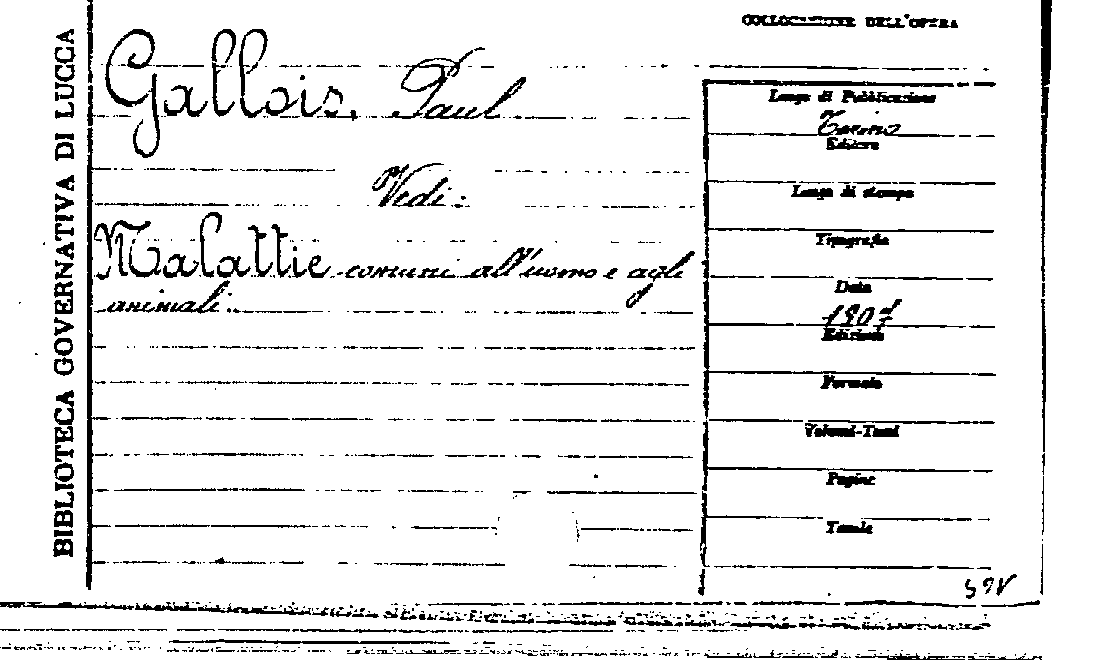 BIBLIOTECA GOVERNATIVA DI LUCCA
COLLOCAZIONE DELL'OPERA
Gallois, Paul
Vedi:
Malattie comuni all'uomo e agli
animali.
Luogo di Pubblicazione
Torino
Editore
Luogo di stampa
Tipografia
Data
1907
Edizione
Formato
Volumi-Tomi
Pagine
Tavole